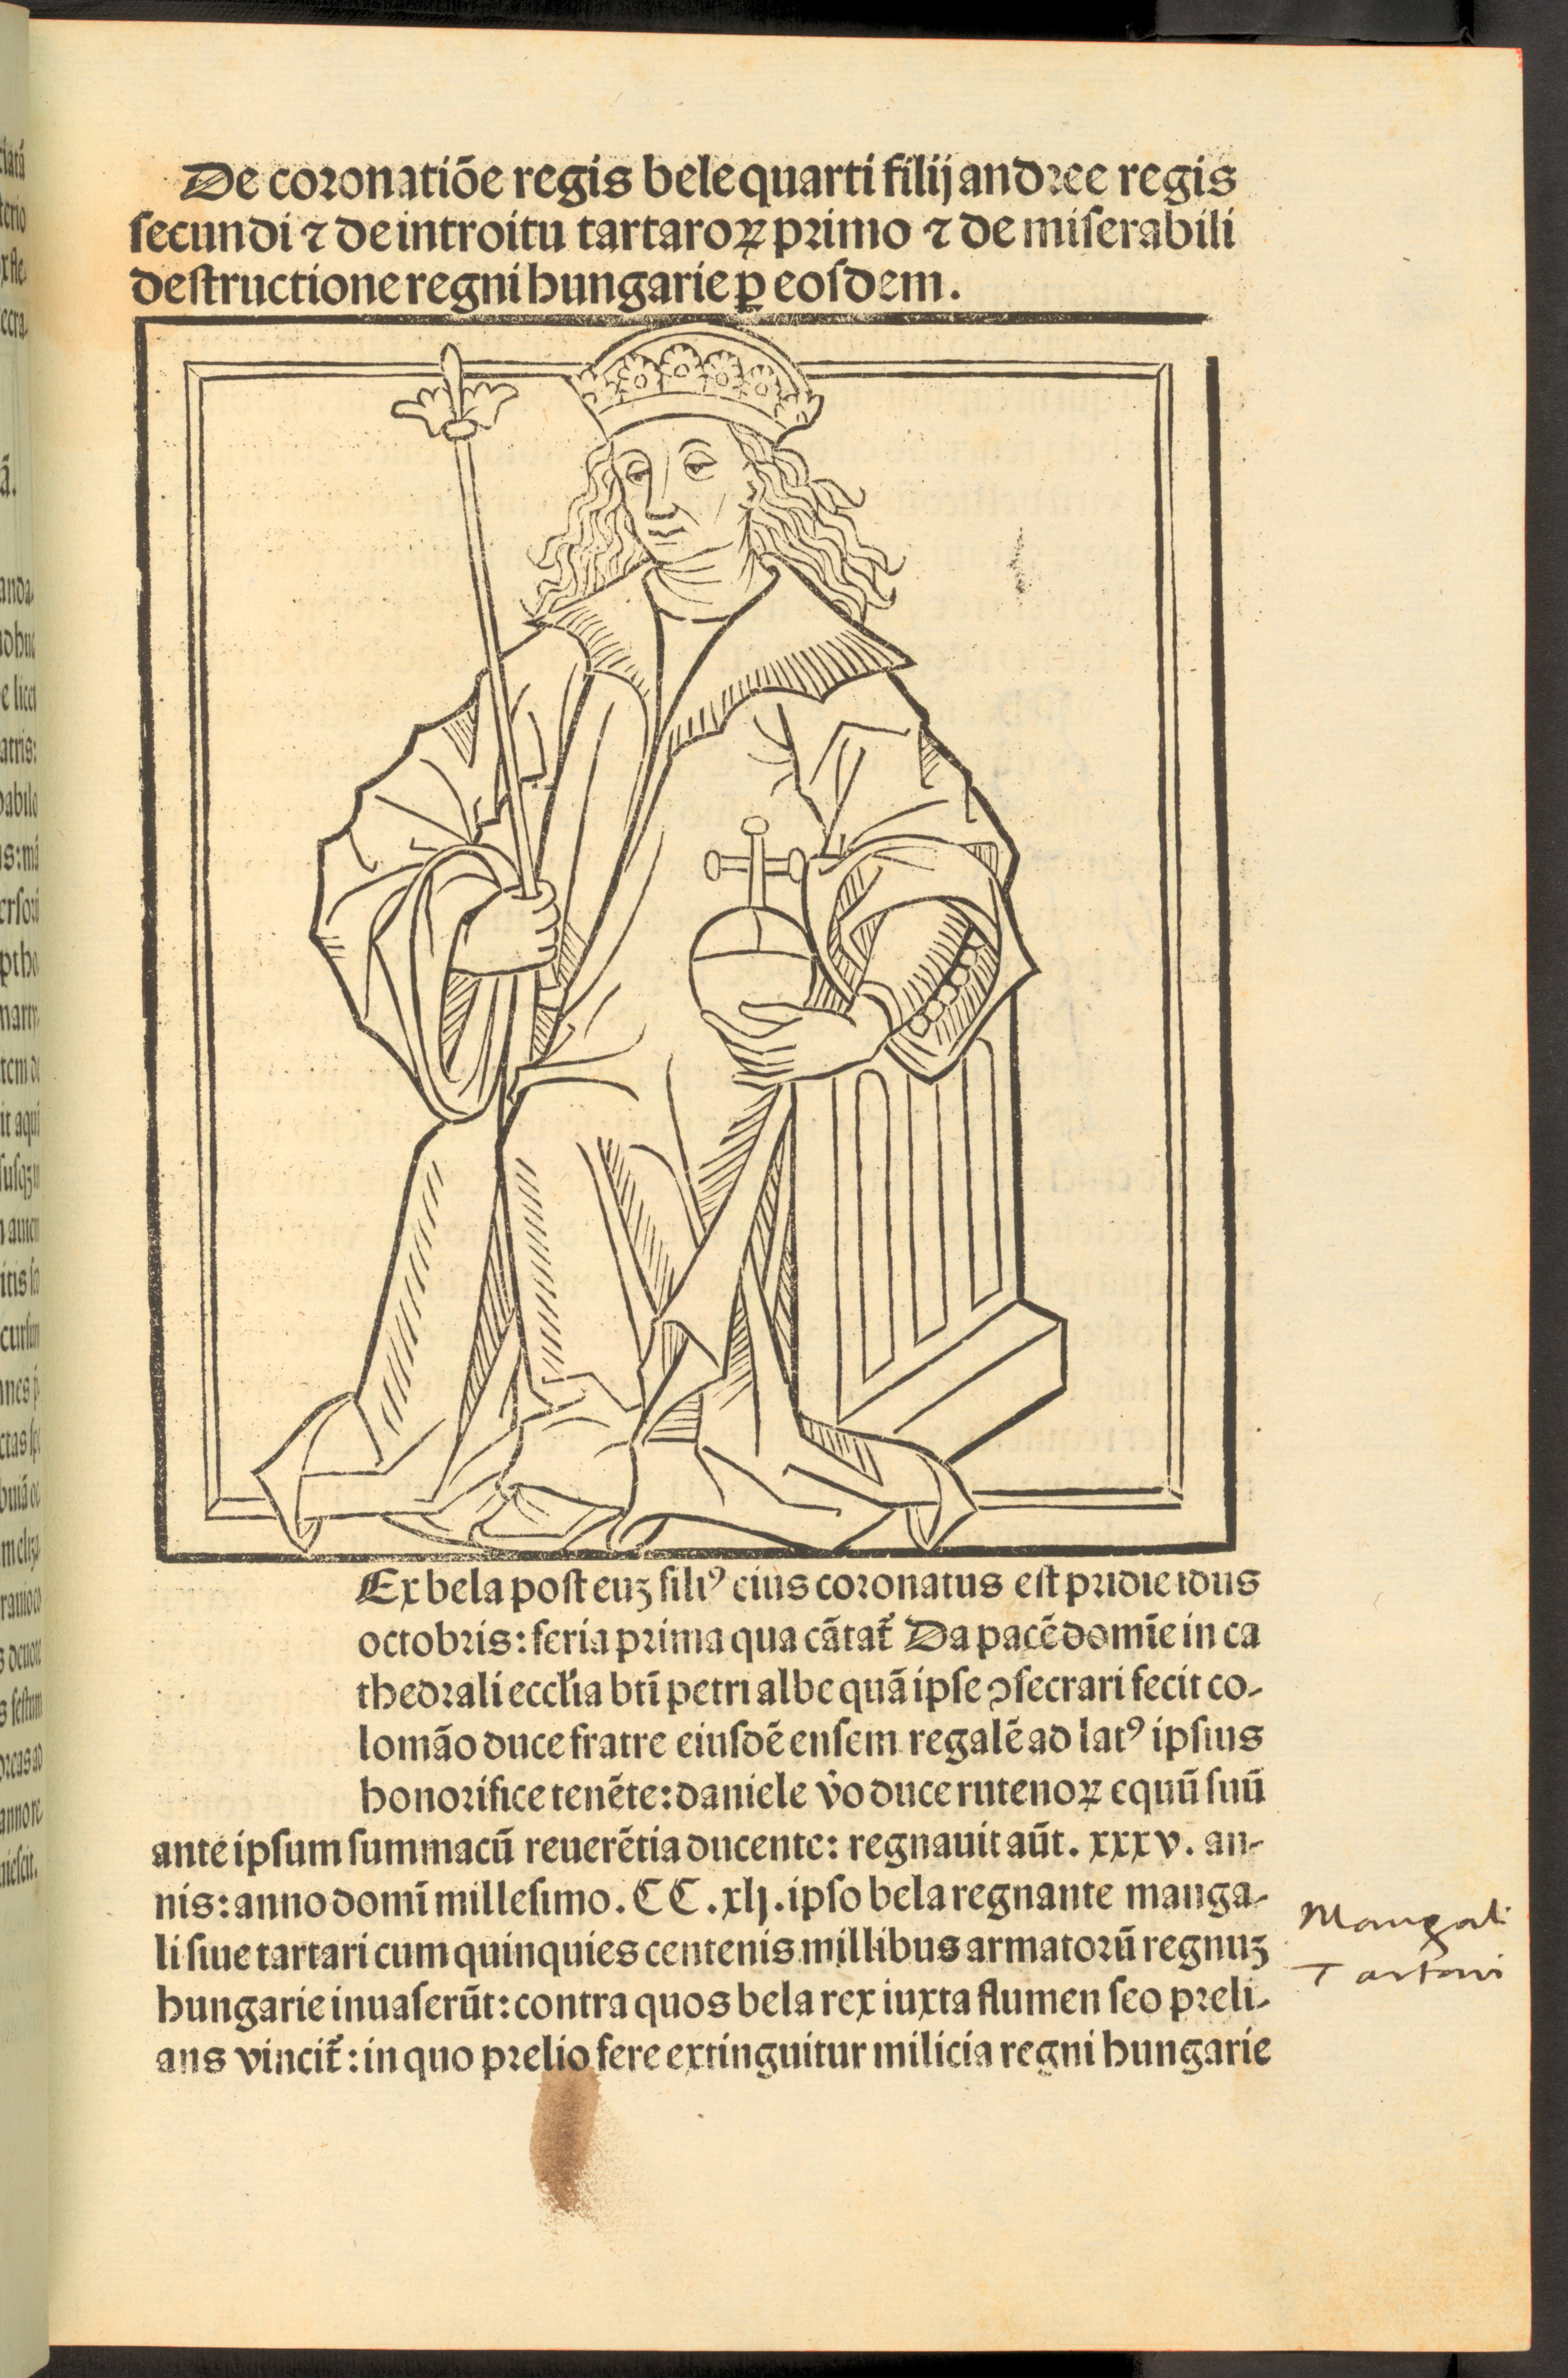 De coronatiōe regis bele quarti filij andree regis
secundi ⁊ de introitu tartaroꝝ primo ⁊ de miserabili
destructione regni hungarie ꝑ eosdem.
Ex bela post euꝫ filiꝰ eius coronatus est pridie idus
octobris: feria prima qua cātat̄ Da pacē domīe in ca
thedrali eccl'ia btī petri albe quā ipse ꝯsecrari fecit co-
lomāo duce fratre eiusdē ensem regalē ad latꝰ ipsius
honorifice tenēte: daniele v̄o duce rutenoꝝ equū suū
ante ipsum summacū reuerētia ducente: regnauit aūt. xxxv. an-
nis: anno domī millesimo. CC. xlj. ipso bela regnante manga-
li siue tartari cum quinquies centenis millibus armatorū regnuꝫ
hungarie inuaserūt: contra quos bela rex iuxta flumen seo preli-
ans vincit̄: in quo prelio fere extinguitur milicia regni hungarie
Mangali
Tartari